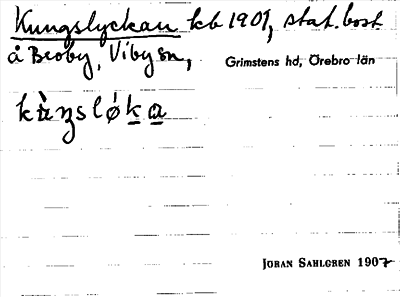 Kungslyckan kb 1901, stat. bost.
å Broby, Viby sn,
Grimstens hd, Örebro län
JÖRAN SAHLGREN 1907